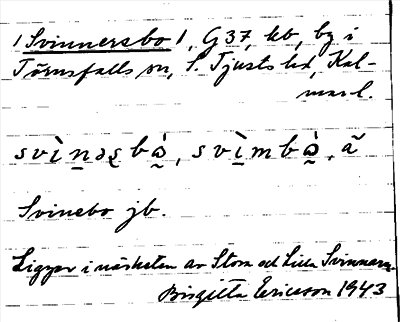 1 Svinnersbo 1, G 37, kb, by i
Törnsfalls sn, S. Tjusts hd, Kal-
mar l.
svìnəʂbὼ, svìmbὼ, ã
Svinebo jb.
Ligger i närheten av Stora och Lilla Svinnarn.
Birgitta Ericsson 1943